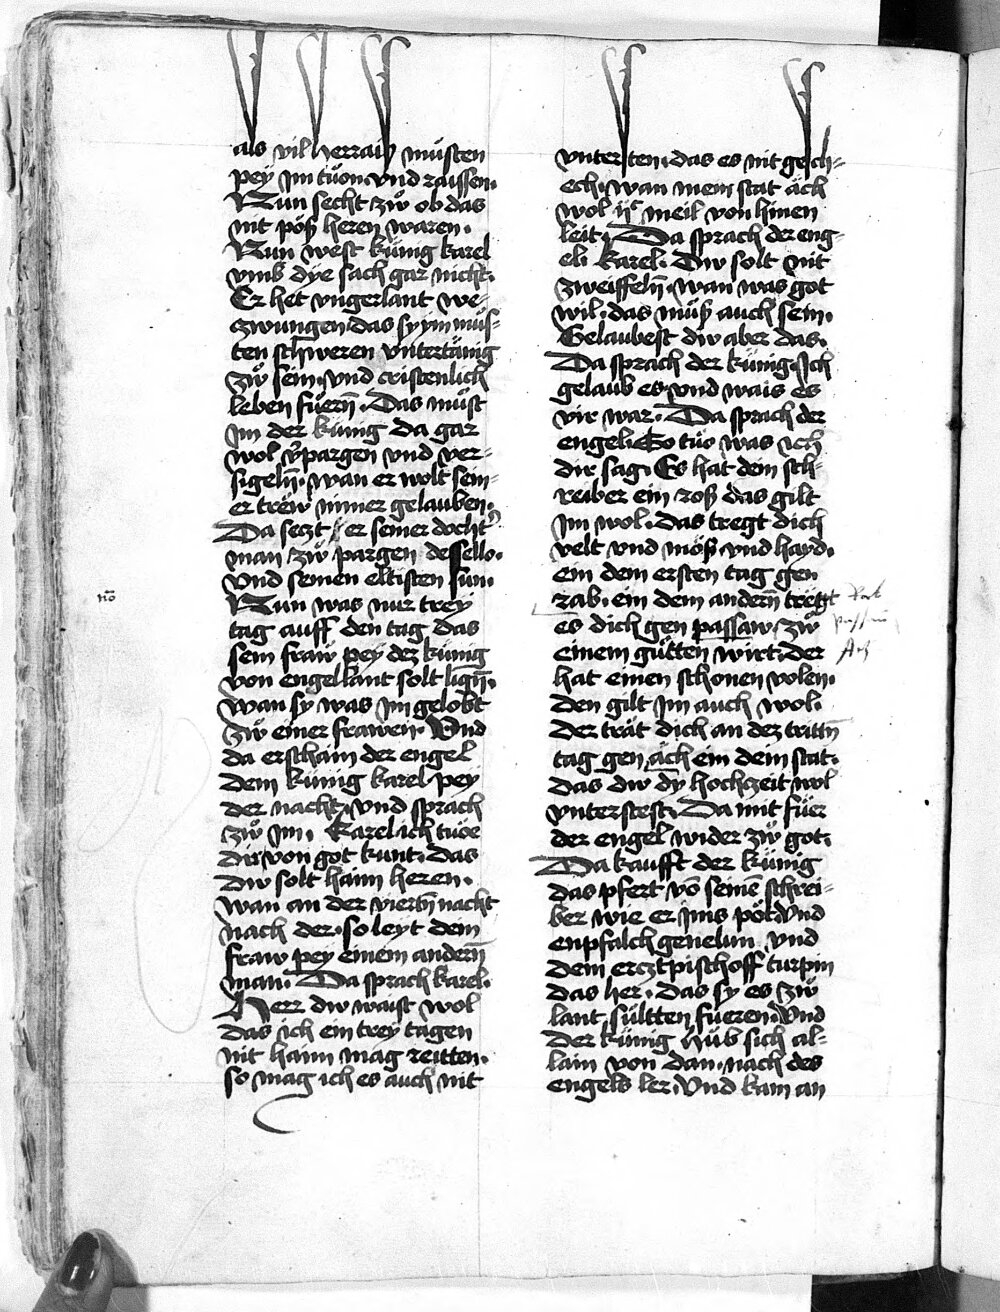 als vil herrauy müsten
pey im tüon. vnd raissen.
Nun secht zů ob das
nit pöß heren waren.
Nun west künig karel
vmb dye sach gar nicht.
Er het vngerlant we-
zwungen das sy ym müs-
ten schweren vntertänig
zů sein. vnd cristenlich
leben füern̄. Das müst
im der künig da gar
wol v̈pargen vnd ver-
sigeln̄. wan er wolt sein-
er trëw nimer gelauben.
Da seczt er seiner docht
man zů pargen desselb.
vnd seinen eltisten sun.
Nun was nur trey
tag auff den tag das
sein fraw pey dez künig
von engellant solt lign̄.
wan sy was im gelobt
zů einer frawen. Vnd
da erschain der engel
dem künig karel pey
der nacht. vnd sprach
zů im. Karel ich tüoe
dir von got kunt. das
Dw solt haim heren.
wan an der viertn̄ nacht
nach der. so leyt dein
fraw pey einem andern̄
man. Da sprach karel.
Herr dw waist wol
das ich ein trey tagen
nit haim mag reitten.
so mag ich es auch nit
vnter ten. das es nit gesch-
ech. wan mein stat äch
wol ijc meil von hinen
leit. Da sprach der eng-
el karel. Dw solt nit
zweiffeln̄. wan was got
wil. das müß auch sein.
Gelaubest dw aber das.
Da sprach der künig. Ich
gelaub es. vnd wais es
vür war. Da sprach der
engel. So tüo was ich
dir sag. Es hat dein sch-
reiber ein roß das gilt
im wol. das tregt dich
velt vnd möß. vnd hayd.
ein dem ersten tag gen
rab. ein dem andern̄ tregt
es dich gen passaw. zů
einem gütten wirt. der
hat einen schonen volen.
den gilt im auch wol.
der trät dich an dez trittn̄
tag gen äch ein dein stat.
das dw dy hochzeit wol
vnterstest. Da mit füer
der engel wider zů got.
Da kaufft der künig
das pfert vō seinē schrei-
ber wie er ims pöt. vnd
enpfalch genelun vnd
dem ercztpischoff turpin
das her. das sy es zů
lant sültten füeren. Vnd
der künig hüb sich al-
lain von dan. nach des
engels ler. Vnd kam an
nō
Rab
passau
Ach